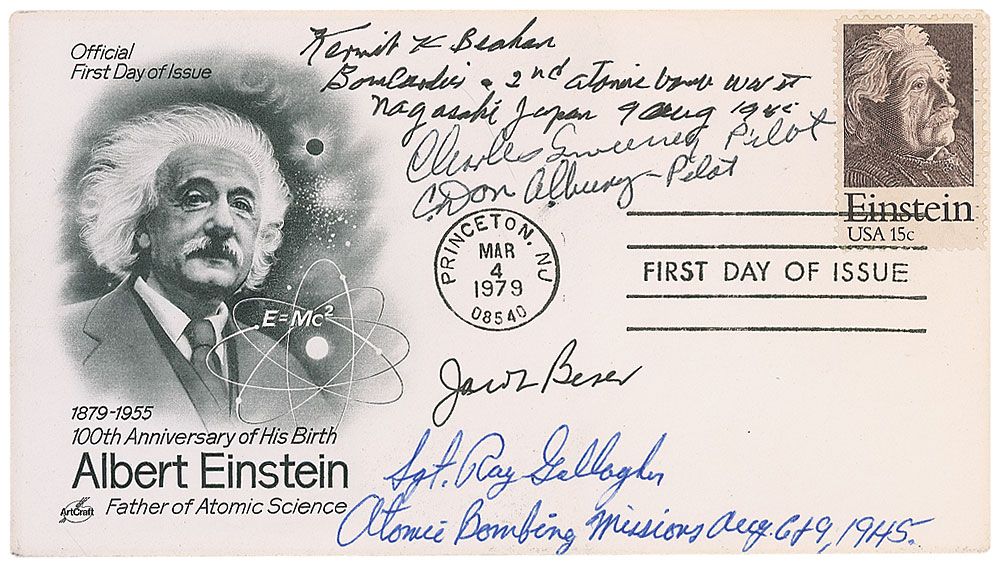 Official
First Day of Issue
Kermit K Beahan
Bombardier 2nd atomic bomb WW II
Nagasaki Japan 9 Aug 1945
Charles Sweeney Pilot
C. Don Albury - Pilot
Einstein
USA 15c
PRINCETON, NJ
MAR
4
1979
08540
FIRST DAY OF ISSUE
E=MC²
Jacob Beser
1879-1955
100th Anniversary of His Birth
Albert Einstein
Father of Atomic Science
ArtCraft
Sgt. Ray Gallagher
Atomic Bombing Missions Aug. 6&9, 1945.